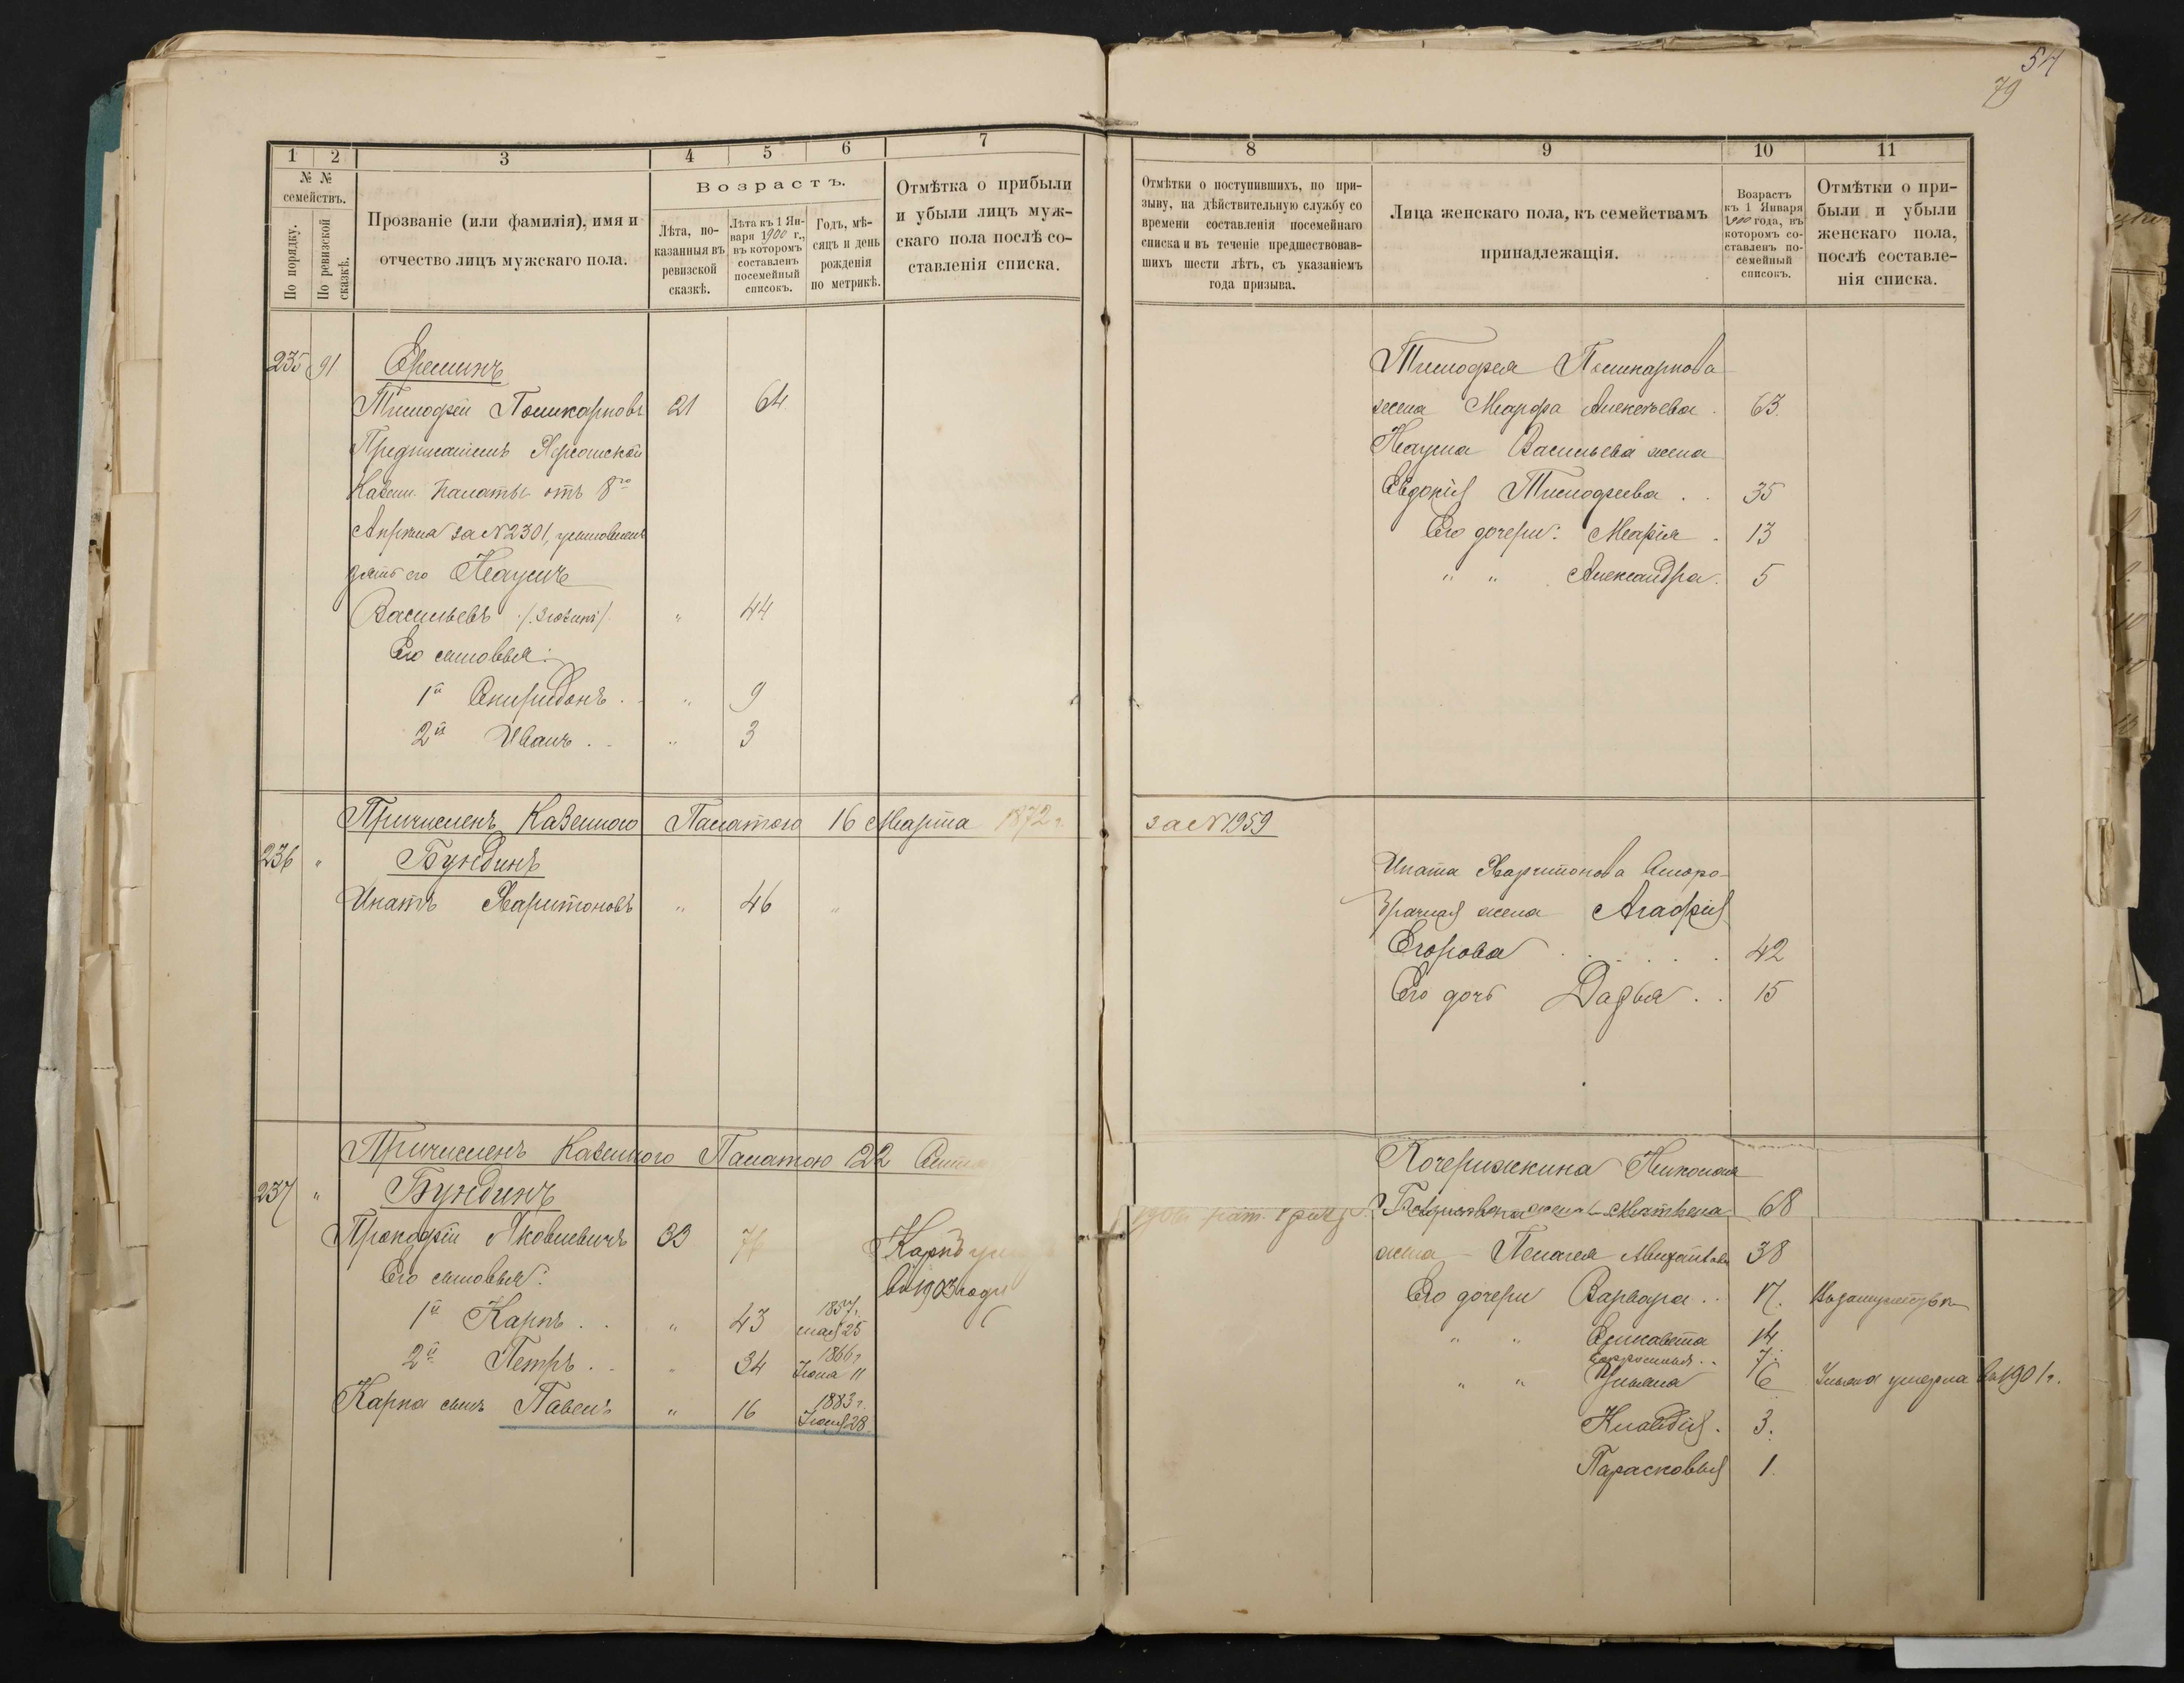 54
79
1 2 3 4 5 6 7
№ № семействъ.
По порядку.
По ревизской сказкѣ.
Прозваніе (или фамилія), имя и
отчество лицъ мужскаго пола.
Возрастъ.
Лѣта, по-
казанныя въ
ревизской
сказкѣ.
Лѣта къ 1 Ян-
варя 1900 г.,
въ которомъ
составленъ
посемейный
списокъ.
Годъ, мѣ-
сяцъ и день
рожденія
по метрикѣ.
Отмѣтка о прибыли
и убыли лицъ муж-
скаго пола послѣ со-
ставленія списка.
235 91 Ереминъ
Тимофей Поликарповъ 21 64
Предписаніемъ Херсонской
Казен. Палаты отъ 8го
Апрѣля за №2301, усыновленъ
зять его Наумъ
Васильевъ " 44
Его сыновья:
1й Спиридонъ . . " 9
2й Иванъ . . " 3
Причисленъ Казенною Палатою 16 Марта 1872 г.
236 " Бундинъ
Ипатъ Харитоновъ " 46 "
Причисленъ Казенною Палатою 22
237 " Бундинъ
Прокофій Яковлевичъ 33
Карпъ
въ 1903 году
Его сыновья:
1й Карпъ . . " 43 1857 г. мая 25
2й Петръ . . " 34 1866 г. Іюня 11
Карпа сынъ Павелъ " 16 1883 г. Іюня 28.
8 9 10 11
Отмѣтки о поступившихъ, по при-
зыву, на дѣйствительную службу со
времени составленія посемейнаго
списка и въ теченіе предшествовав-
шихъ шести лѣтъ, съ указаніемъ
года призыва.
Лица женскаго пола, къ семействамъ
принадлежащія.
Возрастъ
къ 1 Января
1900 года, въ
которомъ со-
ставленъ по-
семейный
списокъ.
Отмѣтки о при-
были и убыли
женскаго пола,
послѣ составле-
нія списка.
Тимофея Поликарпова
жена Марфа Алексѣева . 63.
Наума Васильева жена
Евдокія Тимофеева . . 35
Его дочери: Марія . 13
" " Александра . 5
за №1959
Ипата Харитонова второ-
брачная жена Агафія
Егорова . . . . . . 42
Его дочь Дарья . . 15
Кочерижкина Николая
жена Матрена 68
жена – Пелагея Михайлова 38
Его дочери Варвара . . 17.
" " Елисавета 14
Ефросинья . . 7.
" " Ульяна 6 Ульяна умерла въ 1901 г.
Клавдія . 3.
Парасковья 1.